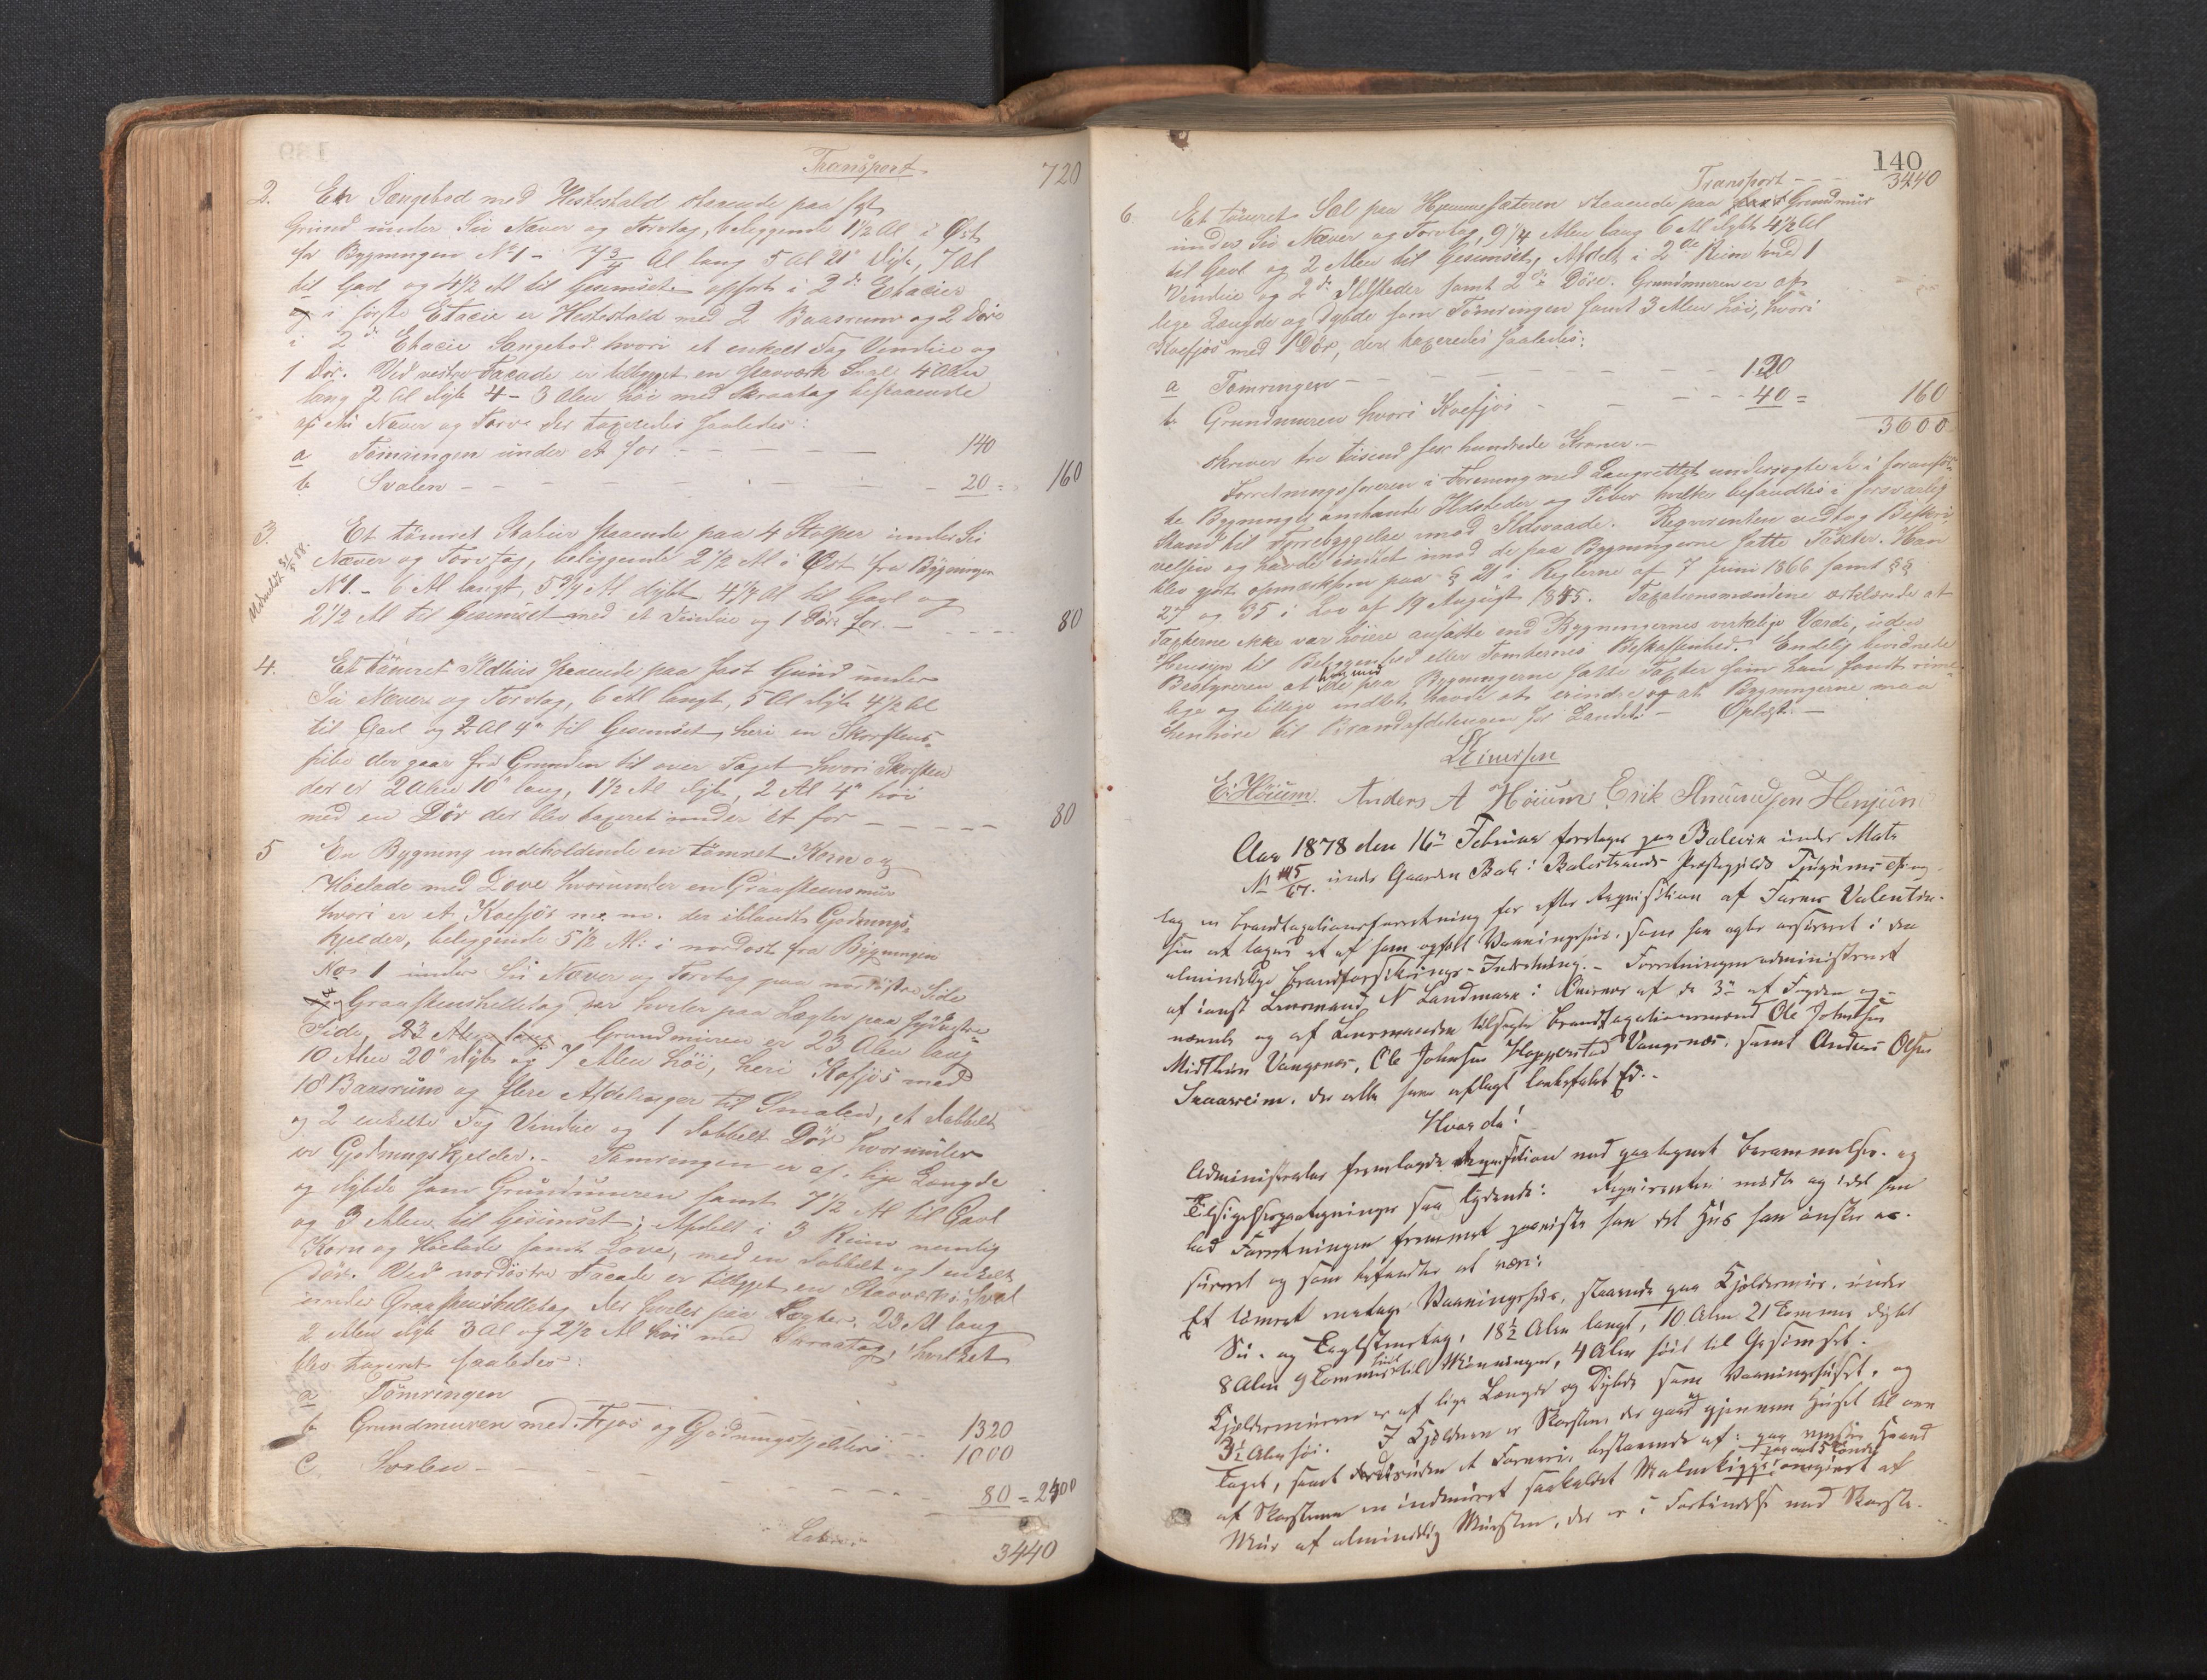 Transport
720
2. En Sængebod med Hestestald staaende paa fast
Grund under Sù Næver og Torvtag, beliggende 1 1/2 Al i Øst
for Bygningen No 1 - 7 3/4 Al lang 5 Al 21" Dyb, 7 Al
til Gavl og 4 1/2 Al til Gesimset opført i 2de Etacier
og i første Etacie er Hestestald med 2 Baasrum og 2 Døre
i 2den Etacie Sængebod hvori et enkelt Fag Vindue og
1 Dør. Ved vestre Facade er tilbygget en Stavværk Sval 4 Alen
lang 2 Al Dyb 4 - 3 Alen høi med Skraatag bestaaende
af Næver og Torv der taxeredes saaledes:
a Tømringen under et for - - - - - 140
b Svalen - - - - - - - 20 = 160
3. Et tømret Stabur staaende paa 4 Stolper under Sù
Næver og Torvtag, beliggende 2 1/2 Al i Øst fra Bygningen
No 1. - 6 Al langt, 5 3/4 Al dybt 4 1/4 Al til Gavl og
2 1/2 Al til Gesimset med et Vindue og 1 Dør for - - - - 80
Udmeldt 31/5 88.
4. Et tømret Ildhus staaende paa fast Grund under
Sù Næver og Torvtag, 6 Al langt, 5 Al dybt 4 1/2 Al
til Gavl og 2 Al 4" til Gesimset, heri en Skorstens-
pibe der gaar fra Grunden til over Taget hvori Skorsten
der er 2 Alen 10" lang, 1 1/2 Al dyb, 2 Al 4" høi
med en Dør der blev taxeret under Et for - - - - - 80
5 En Bygning indeholdende en tømret Korn og
Høelade med Love hvorunder en Graasteensmur
hvori er et Koefjøs m. m. der iblandt Gjødnings-
kjelder, beliggende 5 1/2 Al: i nordost fra Bygningen
No 1 under Sù Næver og Torvtag paa nordøstre Side
og Graasteenshelletag der hviler paa Lægter paa sydvestre
Side, 23 Alen lang Grundmuren er 23 Alen lang
10 Alen 20" dyb og 7 Alen høi, heri Kofjøs med
18 Baasrum og flere Afdelinger til Smalen, et dobbelt
og 2 enkelte Fag Vindue og 1 dobbelt Dør hvorunder
er Gjødningskjelder. - Tømringen er af lige Længde
og dybde som Grundmuren samt 7 1/2 Al til Gavl
og 3 Alen til Gesimset; Afdelt i 3 Rum nemlig
Korn og Høelade samt Love, med en dobbelt og 1 enkelt
Dør. Ved nordøstre Facade er tilbygget en Stavværks Sval
under Graasteenshelletag der hviler paa Lægter. 23 Al lang
2 Alen dyb 3 Al og 2 1/2 Al høi med Skraatag, hvilket
blev taxeret saaledes:
a Tømringen - - 1320
b Grundmuren med Fjøs og Gjødningskjelder - - 1000
c Svalen - - - - - - - - 80 = 2400
Latus 3440
140
Transport - - - 3440
6 Et tømret Sel paa Hjemmesæteren staaende paa Grundmur
under Sù Næver og Torvtag, 9 1/4 Alen lang 6 Al dybt 4 1/2 Al
til Gavl og 2 Alen til Gesimset, Afdelt i 2de Rum med 1
Vindue og 2de Ildsteder samt 2de Døre. Grundmuren er af
lige Længde og dybde som Tømringen samt 3 Alen høi, hvori
Koefjøs med 1 Dør, der taxeredes saaledes:
a Tømringen - - - - - - - 120
b Grundmuren hvori Koefjøs - - - - 40 = 160
3600
skriver tre tusend sex hundrede Kroner. -
Forretningsføreren i Forening med Laugrettet undersøgte de i foranstaa-
ende Bygninger ommhande Ildsteder og Piber hvilke befandtes i forsvarlig
Stand til Forrebyggelse imod Ildsvaade. Reqvirenten vedtog Beskri-
velsen og havde Intet imod de paa Bygningerne satte Taxter. Han
blev gjort opmærksom paa § 21 i Reglerne af 7 Juni 1866 samt §§
27 og 35 i Lov af 19 August 1845. Taxationsmændene erklærede at
Taxterne ikke var høiere ansatte end Bygningernes virkelige Værdi, uden
Hensyn til Beliggenhed eller Tomternes Beskaffenhed. Endelig bemærkede
Bestyreren at han mod de paa Bygningerne satte Taxter som han fandt rime-
lige og billige Intet havde at erindre og at Bygningerne maa
henhøre til Brandafdelingen for Landet. - Oplæst. -
Einersen
E. Høium. Anders A Høium Erik Amundsen Henjum
Aar 1878 den 16de Februar foretoges paa Balevik under Matr
No 115/67. under Gaarden Bale i Balestrands Præstegjelds Tjugums Thing-
lag en Brandtaxationsforretning for efter Reqvisition af Farver Valentin-
sen at taxere et af ham opført Vaaningshus, som han agter assureret i den
almindelige Brandforsikrings-Indretning. - Forretningen administreret
af const Lensmand N Landmark i Overvær af de 3de af Fogden op-
nævnte og af Lensmanden tilsagte Brandtaxationsmænd Ole Johnsen
Midthun Vangsnes, Ole Johnsen Hopperstad Vangsnes, samt Anders Olsen
Snaareim. der alle have aflagt lovbefalet Ed. -
Hvorda!
Administrator fremlagde Reqvisition med paategnet Berammelse og
Tilsigelsespaategninger saa lydende: Reqvirenten mødte og idet han
bad Forretningen fremmet paaviste han det Hus han ønsker as-
sureret og som befandtes at være:
Et tømret enetages Vaaningshus, staaende paa Kjeldermur, under
Sù- og Taglsteenstag, 18 1/2 Alen langt, 10 Alen 21 Tommer dybt
8 Alen 9 Tommer høit til Mønningen, 4 Alen høit til Gesimset.
Kjeldermuren er af lige Længde og Dybde som Vaaningshuset, og
3 1/2 Alen høi. I Kjelderen er Skorsten, der gaar op gjennem Huset til over
Taget, samt desuden et Farveri, bestaaende af: paa venstre Haand
af Skorstenen en indmuret saakaldet Malmkippe paa omt 5 Tønder omgivet af
Mur af almindelig Mursten, der er i Forbindelse med Skorste-